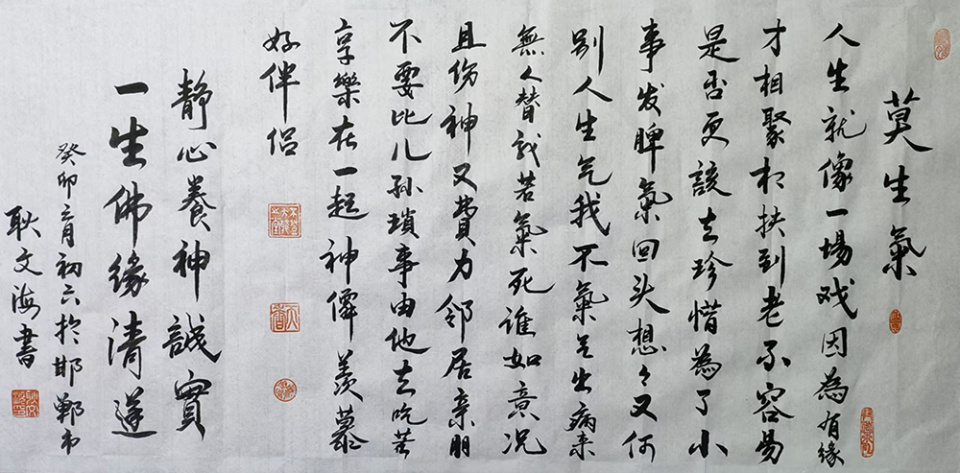 莫生氣
人生就像一場戏因為有緣
才相聚相扶到老不容易
是否更該去珍惜為了小
事发脾氣回头想々又何
别人生气我不氣气出病来
無人替我若氣死谁如意况
且伤神又費力邻居亲朋
不要比儿孙瑣事由他去吃苦
享樂在一起神僊羡慕
好伴侣
静心養神誠實
一生佛缘清莲
癸卯二月初六於邯郸市
耿文海書